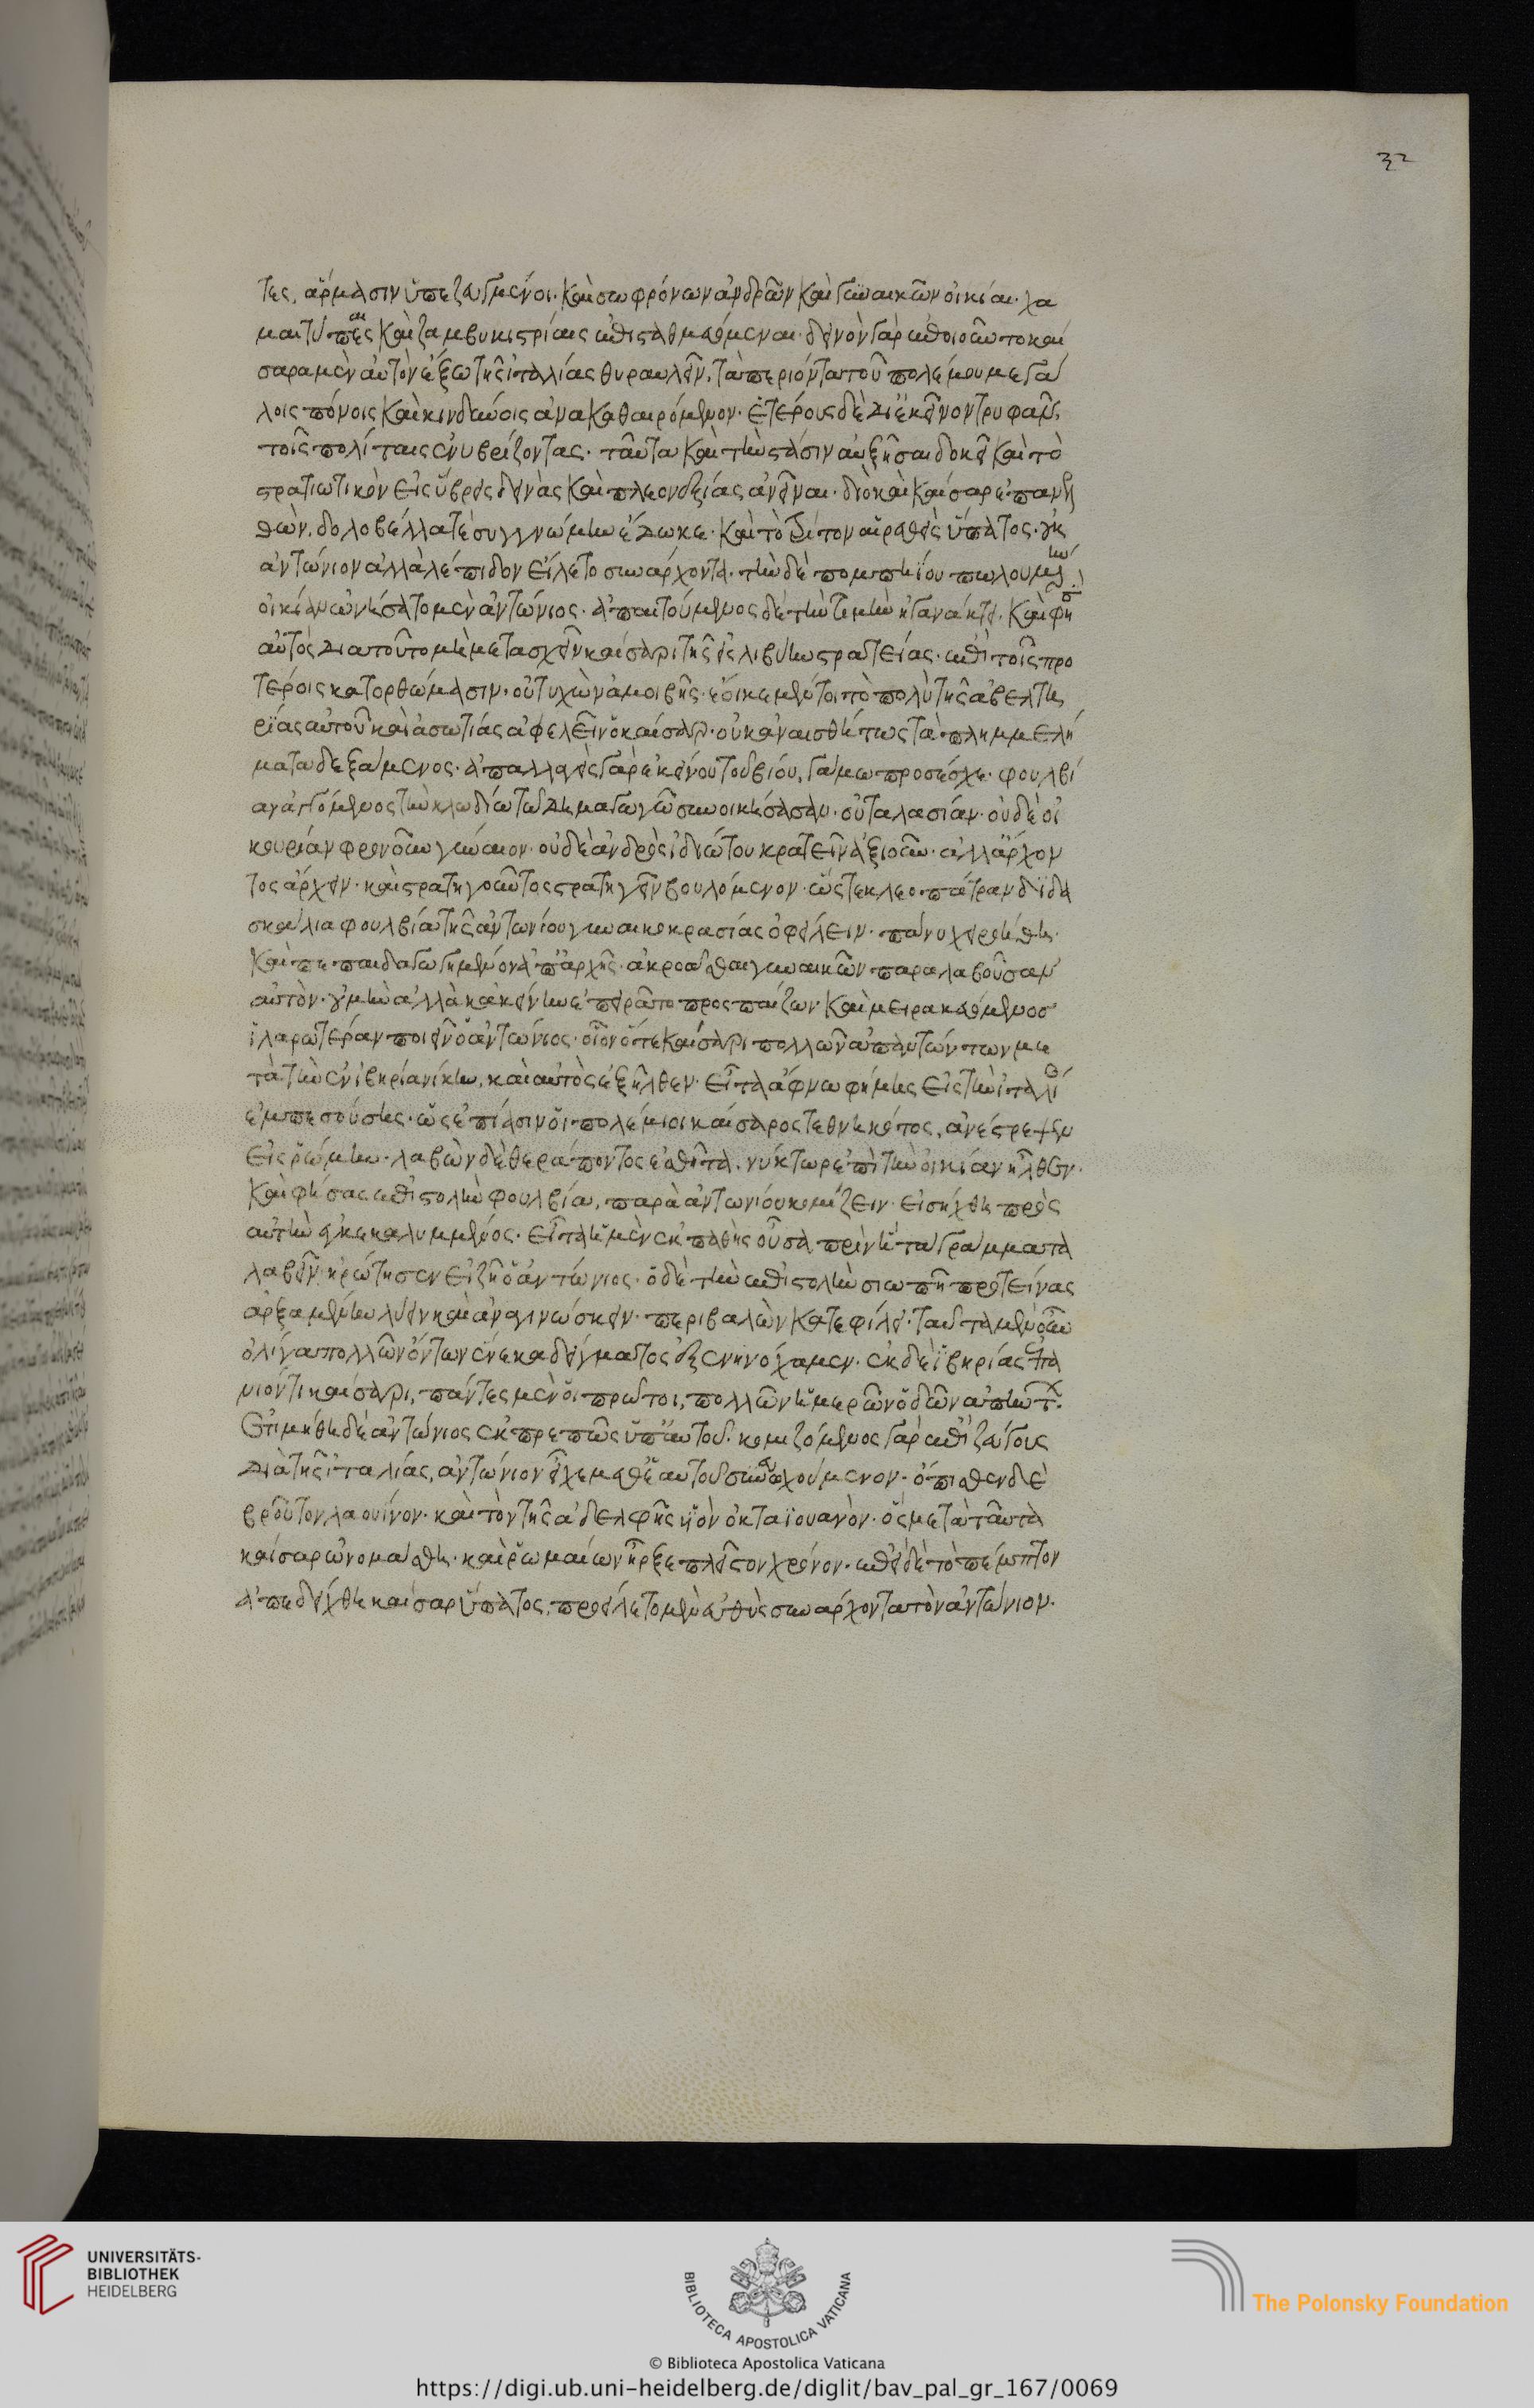 32
τες, ἅρμασιν ὑπεζευγμένοι· καὶ σωφρόνων ἀνδρῶν καὶ γυναικῶν οἰκίαι· χα
μαιτύπαις καὶ ζαμβυκιστρίαις ἐπισταθμευόμεναι· δεινὸν γὰρ ἐποιοῦντο καί
σαρα μὲν αὐτὸν ἔξω τῆς ἰταλίας θυραυλεῖν, τὰ περιόντα τοῦ πολέμου μεγά
λοις πόνοις καὶ κινδύνοις ἀνακαθαιρόμενον· ἑτέρους δὲ δι' ἐκεῖνον τρυφᾶν,
τοῖς πολίταις ἐνυβρίζοντας· ταῦτα καὶ τὴν στάσιν αὐξῆσαι δοκεῖ καὶ τὸ
στρατιωτικὸν εἰς ὕβρεις δεινὰς καὶ πλεονεξίας ἀνεῖναι· διὸ καὶ καίσαρ ἐπανελ
θὼν, δολοβέλλα τε συγγνώμην ἔδωκε· καὶ τὸ τρίτον αἱρεθεὶς ὕπατος· οὐκ
ἀντώνιον ἀλλὰ λέπιδον εἵλετο συνάρχοντα· τὴν δὲ πομπηίου πωλουμένην
οἰκίαν ὠνήσατο μὲν ἀντώνιος· ἀπαιτούμενος δὲ τὴν τιμὴν ἠγανάκτει· καὶ φησιν
αὐτὸς διὰ τοῦτο μὴ μετασχεῖν καίσαρι τῆς εἰς λιβύην στρατείας· ἐπὶ τοῖς προ
τέροις κατορθώμασιν· οὐ τυχὼν ἀμοιβῆς· ἔοικε μέντοι τὸ πολὺ τῆς ἀβελτη
ρίας αὐτοῦ καὶ ἀσωτίας ἀφελεῖν ὁ καίσαρ· οὐκ ἀναισθήτως τὰ πλημμελή
ματα δεξάμενος· ἀπαλλαγεὶς γὰρ ἐκείνου τοῦ βίου, γάμω προσέσχε· φουλβί
αν ἀγόμενος τὴν κλωδίω τῶ δημαγωγῶ συνοικήσασαν· οὐ ταλασίαν· οὐδὲ οἰ
κουρίαν φρονοῦν γύναιον· οὐδὲ ἀνδρὸς ἰδιώτου κρατεῖν ἀξιοῦν· ἀλλ' ἄρχον
τος ἄρχειν· καὶ στρατηγοῦντος στρατηγεῖν βουλόμενον· ὥστε κλεοπάτραν διδα
σκάλια φουλβία τῆς ἀντωνίου γυναικοκρασίας ὀφείλειν· πάνυ χειροήθη·
καὶ πεπαιδαγωγημένον ἀπ' ἀρχῆς· ἀκροᾶσθαι γυναικῶν παραλαβοῦσαν
αὐτὸν· οὐ μὴν ἀλλὰ κἀκείνην ἐπειρᾶτο προσπαίζων καὶ μειρακιευόμενος
ἱλαρωτέραν ποιεῖν ὁ ἀντώνιος· οἷον ὅτε καίσαρι πολλῶν ἀπαντώντων με
τὰ τὴν ἐν ἰβηρία νίκην, καὶ αὐτὸς ἐξῆλθεν· εἶτα ἄφνω φήμης εἰς τὴν ἰταλί
ἐμπεσούσης· ὡς ἐπίασιν οἱ πολέμιοι καίσαρος τεθνηκότος, ἀνέστρεψεν
εἰς ῥώμην· λαβὼν δὲ θεράποντος ἐσθῆτα, νύκτωρ ἐπὶ τὴν οἰκίαν ἦλθεν·
καὶ φήσας ἐπιστολὴν φουλβία, παρὰ ἀντωνίου κομίζειν· εἰσήχθη πρὸς
αὐτὴν ἐγκεκαλυμμένος· εἶτα ἡ μὲν ἐκπαθὴς οὖσα, πρὶν ἢ τὰ γράμματα
λαβεῖν, ἠρώτησεν εἰ ζῆ ὁ ἀντώνιος· ὁ δὲ τὴν ἐπιστολὴν σιωπῆ προτείνας
ἀρξαμένην λύειν καὶ ἀναγινώσκειν· περιβαλὼν κατεφίλει· ταῦτα μὲν οὖν
ὀλίγα πολλῶν ὄντων ἕνεκα δείγματος ἐξενηνόχαμεν· ἐκ δὲ ἰβηρίας ἐπα
νιόντι καίσαρι, πάντες μὲν οἱ πρῶτοι, πολλῶν ἡμερῶν ὁδῶν ἀπήντ.
ἐτιμήθη δὲ ἀντώνιος ἐκπρεπῶς ὑπ' αὐτοῦ· κομιζόμενος γὰρ ἐπὶ ζεύγους
διὰ τῆς ἰταλίας, ἀντώνιον εἶχε μεθ' ἑαυτοῦ συνοχούμενον· ὄπισθεν δὲ
βροῦτον λαουίνον· καὶ τὸν τῆς ἀδελφῆς υἱὸν ὀκταϊουανὸν· ὃς μετὰ ταῦτα
καίσαρ ὠνομάσθη· καὶ ῥωμαίων ἦρξε πλεῖστον χρόνον· ἐπεὶ δὲ τὸ πέμπτον
ἀπεδείχθη καίσαρ ὕπατος, προσείλετο μὲν εὐθὺς συνάρχοντα τὸν ἀντώνιον·
UNIVERSITÄTS-
BIBLIOTHEK
HEIDELBERG
BIBLIOTECA APOSTOLICA VATICANA
The Polonsky Foundation
© Biblioteca Apostolica Vaticana
https://digi.ub.uni-heidelberg.de/diglit/bav_pal_gr_167/0069